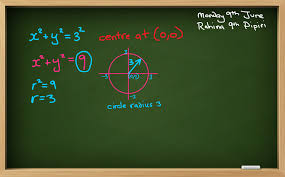 Monday 9th June
Rahina 9th Pipiri
x² + y² = 3²
centre at (0,0)
x² + y² = 9
r² = 9
r = 3
3
-3
3
(0,0)
circle radius 3